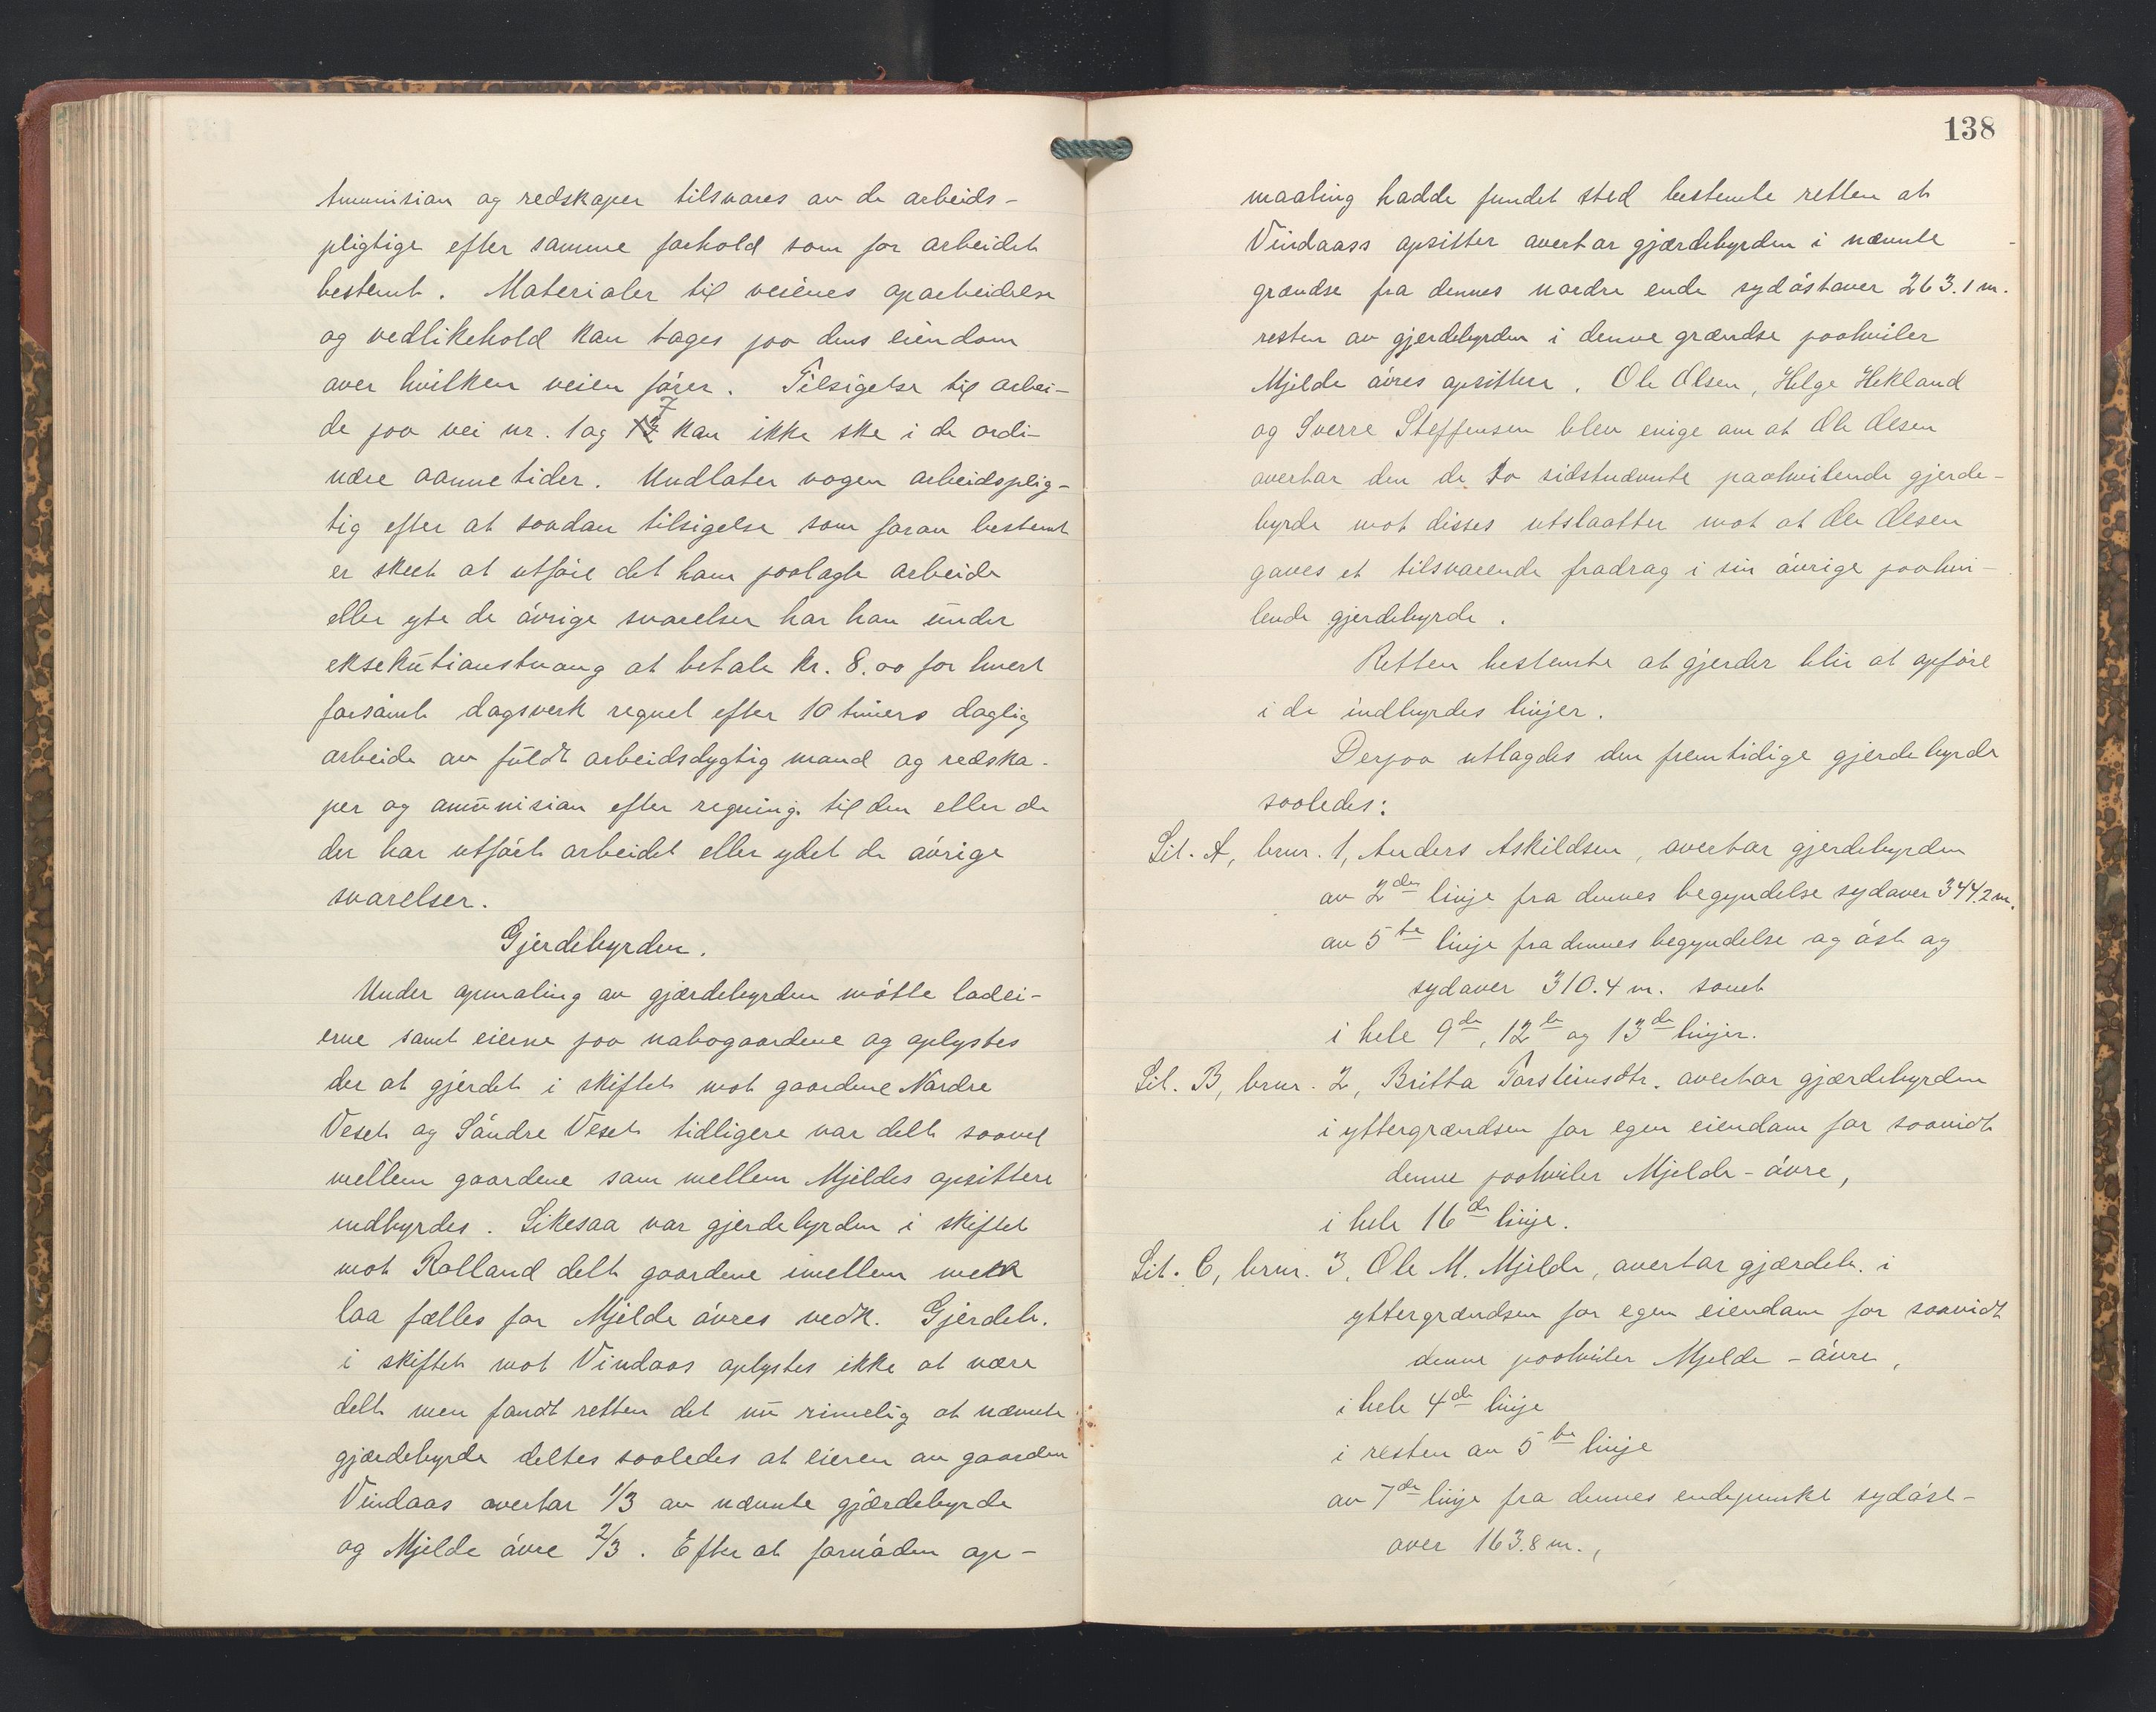 ammunision og redskaper tilsvares av de arbeids-
pligtige efter samme forhold som for arbeidet
bestemt. Materialer til veienes oparbeidelse
og vedlikehold kan tages paa dens eiendom
over hvilken veien fører. Tilsigelse til arbei-
de paa vei nr. 1 og 7 kan ikke ske i de ordi-
nære aannetider. Undlater nogen arbeidsplig-
tig efter at saadan tilsigelse som foran bestemt
er skeet at utføre det ham paalagte arbeide
eller yte de øvrige svarelser har han under
eksekutionstvang at betale kr. 8.00 for hvert
forsømt dagsverk regnet efter 10 timers daglig
arbeide av fuldt arbeidsdygtig mand og redska-
per og amunision efter regning til den eller de
der har utført arbeidet eller ydet de øvrige
svarelser.
Gjerdebyrden.
Under opmaling av gjærdebyrden møtte lodei-
erne samt eierne paa nabogaardene og oplystes
der at gjerdet i skiftet mot gaardene Nordre
Veset og Søndre Veset tidligere var delt saavel
mellem gaardene som mellem Mjeldes opsittere
indbyrdes. Likesaa var gjerdebyrden i skiftet
mot Rolland delt gaardene imellem men
laa fælles for Mjelde øvres vedk. Gjerdeb.
i skiftet mot Vindaas oplystes ikke at være
delt men fandt retten det nu rimelig at nævnte
gjærdebyrde deltes saaledes at eieren av gaarden
Vindaas overtar 1/3 av nævnte gjærdebyrde
og Mjelde øvre 2/3. Efter at fornøden op-
138
maaling hadde fundet sted bestemte retten at
Vindaass opsitter overtar gjærdebyrden i nævnte
grændse fra dennes nordre ende sydøstover 263.1 m.
resten av gjerdebyrden i denne grændse paahviler
Mjelde øvres opsittere. Ole Olsen, Helge Hekland
og Sverre Steffensen blev enige om at Ole Olsen
overtar den de to sidstnævnte paahvilende gjerde-
byrde mot disses utslaatter mot at Ole Olsen
gaves et tilsvarende fradrag i sin øvrige paahvi-
lende gjerdebyrde.
Retten bestemte at gjerder blir at opføre
i de indbyrdes linjer.
Derpaa utlagdes den fremtidige gjerdebyrde
saaledes:
Lit. A, brnr. 1, Anders Askildsen, overtar gjerdebyrden
av 2den linje fra dennes begyndelse sydover 344.2 m.
av 5te linje fra dennes begyndelse og øst og
sydover 310.4 m. samt
i hele 9de, 12te og 13de linjer.
Lit. B, brnr. 2, Britta Torsteinsdtr. overtar gjærdebyrden
i yttergrændsen for egen eiendom for saavidt
denne paahviler Mjelde-øvre,
i hele 16de linje.
Lit. C, brnr. 3, Ole M. Mjelde, overtar gjærdeb. i
yttergrændsen for egen eiendom for saavidt
denne paahviler Mjelde-øvre,
i hele 4de linje
i resten av 5te linje
av 7de linje fra dennes endepunkt sydøst-
over 163.8 m.,